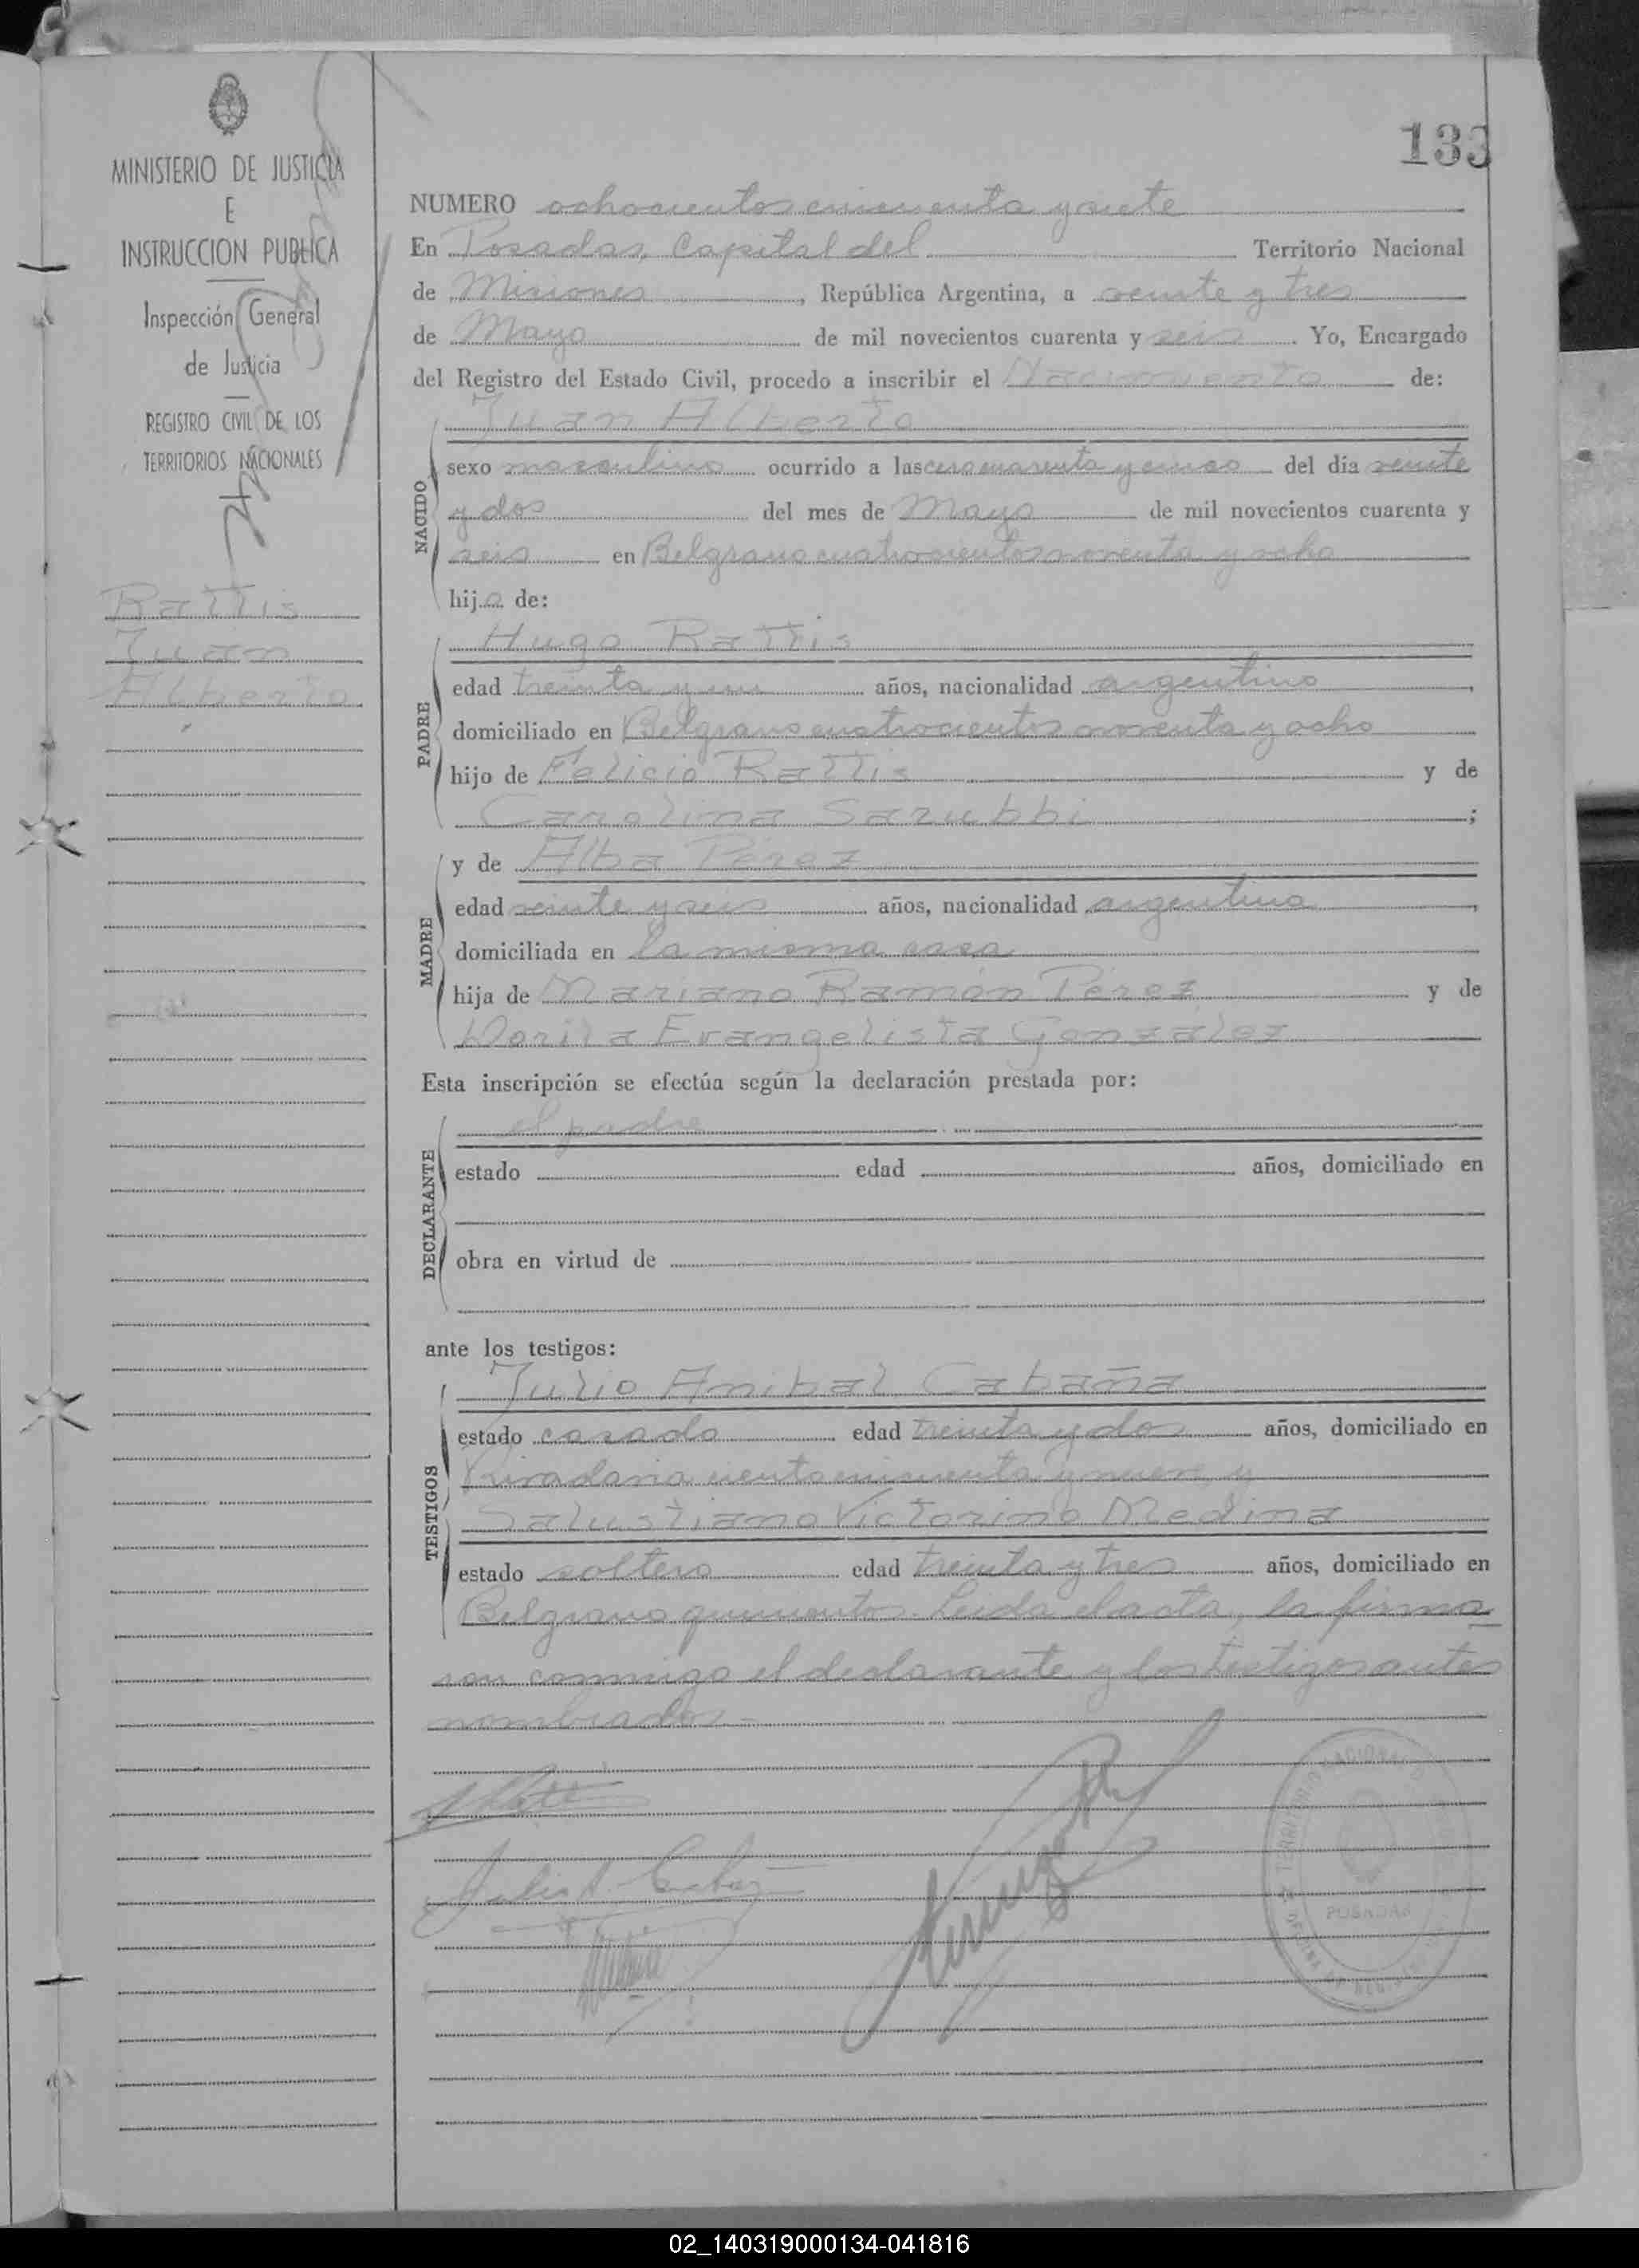 133
MINISTERIO DE JUSTICIA
E
INSTRUCCION PUBLICA
Inspección General
de Justicia
REGISTRO CIVIL DE LOS
TERRITORIOS NACIONALES
Rattis
Juan
Alberto
NUMERO ochocientos cincuenta y siete
En Posadas, Capital del Territorio Nacional
de Misiones, República Argentina, a veinte y tres
de Mayo de mil novecientos cuarenta y seis. Yo, Encargado
del Registro del Estado Civil, procedo a inscribir el Nacimiento de:
NACIDO
Juan Alberto
sexo masculino ocurrido a las cero cuarenta y cinco del dia veinte
y dos del mes de Mayo de mil novecientos cuarenta y
seis en Belgrano cuatrocientos noventa y ocho
hijo de:
PADRE
Hugo Rattis
edad treinta y un años, nacionalidad argentino
domiciliado en Belgrano cuatrocientos noventa y ocho
hijo de Felicio Rattis y de
Carolina Sarubbi;
MADRE
y de Alba Pérez
edad veinte y seis años, nacionalidad argentina
domiciliada en la misma casa
hija de Mariano Ramón Pérez y de
Evangelista González
Esta inscripción se efectúa según la declaración prestada por:
DECLARANTE
el padre
estado edad años, domiciliado en
obra en virtud de
ante los testigos:
TESTIGOS
Julio Anibal Cabaña
estado casado edad treinta y dos años, domiciliado en
Rivadavia ciento cincuenta y nueve y
Salustiano Victorino Medina
estado soltero edad treinta y tres años, domiciliado en
Belgrano quinientos. Leida el acta, la firma
ron conmigo el declarante y los testigos antes
nombrados.-
POSADAS
02_140319000134-041816